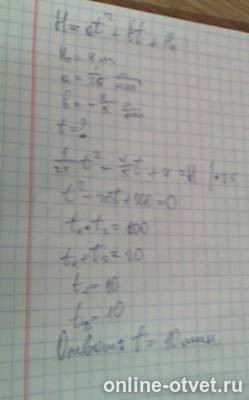 H = at² + bt + H₀
H₀ = 4 м
a = 1/25 м/мин
b = -4/5 м/мин
t = ?
1/25 t² - 4/5 t + 4 = 0 | · 25
t² - 20t + 100 = 0
t₁ · t₂ = 100
t₁ + t₂ = 20
t₁ = 10
t₂ = 10
Ответ: t = 10 мин
online-otvet.ru